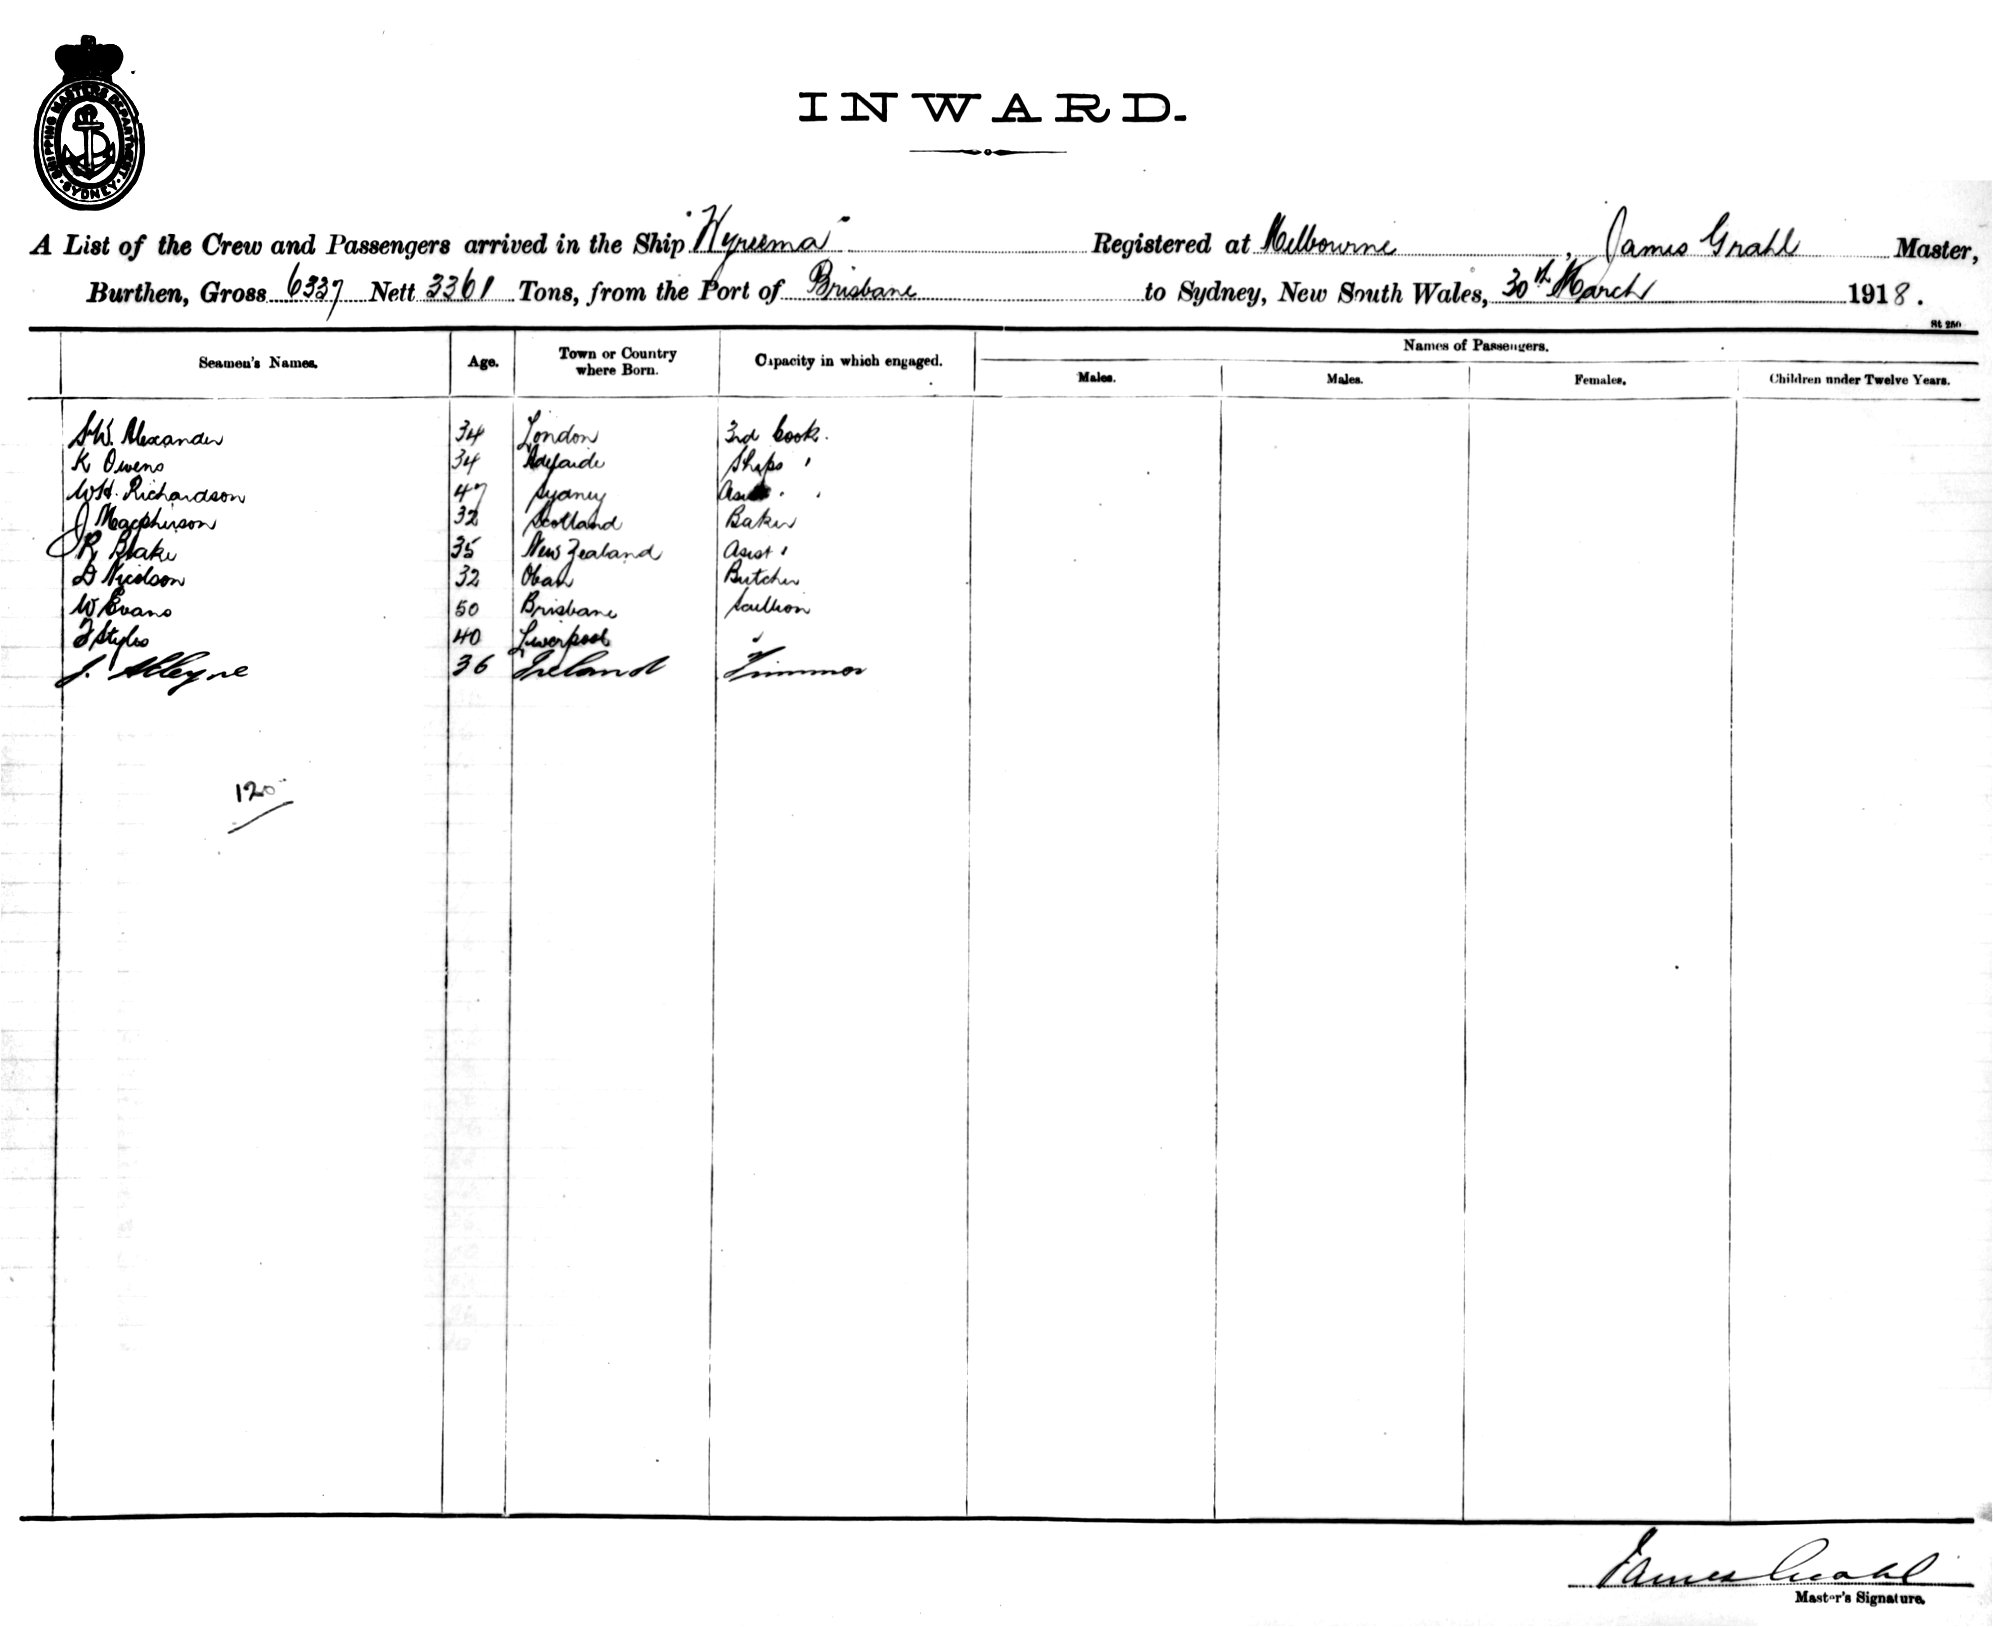 SHIPPING MASTERS DEPARTMENT · SYDNEY ·
INWARD.
A List of the Crew and Passengers arrived in the Ship "Wyreema" Registered at Melbourne, James Grahl Master,
Burthen, Gross 6337 Nett 3361 Tons, from the Port of Brisbane to Sydney, New South Wales, 30th March 1918.
St 250
Seamen's Names. Age. Town or Country where Born. Capacity in which engaged. Names of Passengers.
Males. Males. Females. Children under Twelve Years.
S.W. Alexander 34 London 3rd Cook.
K Owens 34 Adelaide Ships "
W.H. Richardson 47 Sydney
J Macpherson 32 Scotland Baker
R Blake 35 New Zealand Asist "
D Nicolson 32 Oban Butcher
W Evans 50 Brisbane Scullion
F Styles 40 Liverpool "
J. Alleyne 36 Ireland Trimmer
120
James Grahl
Master's Signature.